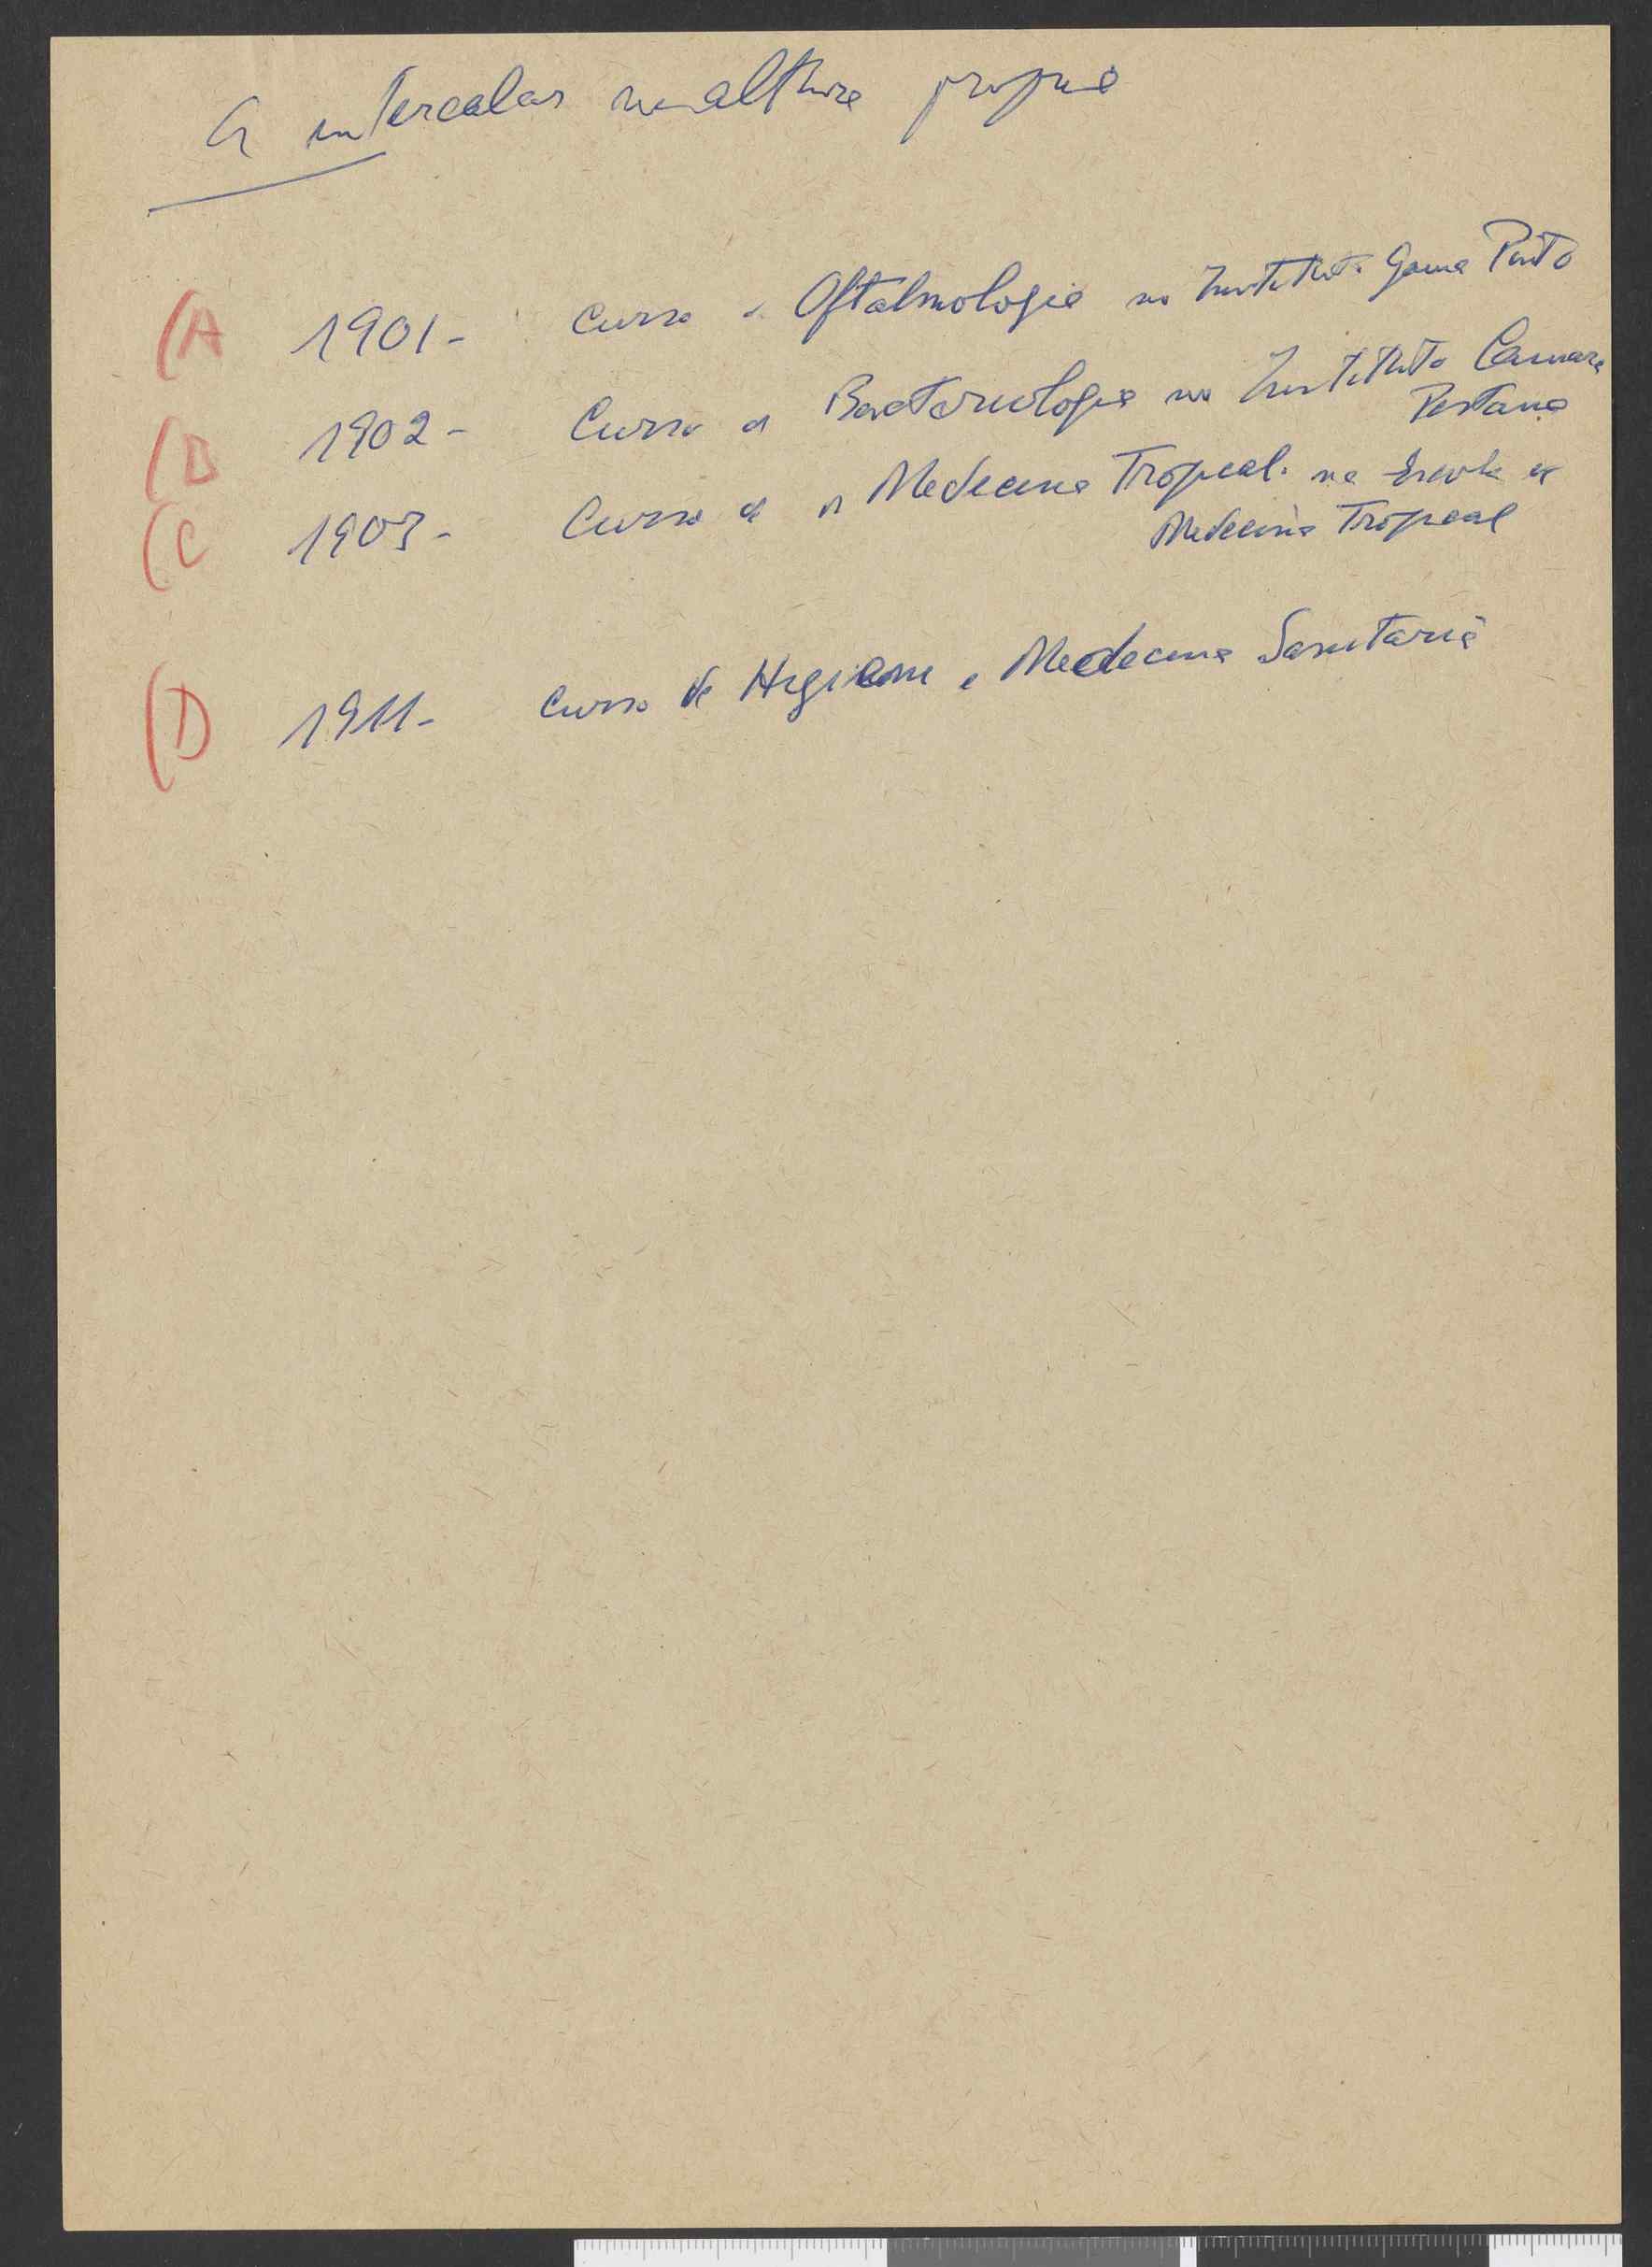 A intercalar na altura propria
(A 1901 - Curso de Oftalmologia no Instituto Gama Pinto
(B 1902 - Curso de Bacteriologia no Instituto Camara
Pestana
(C 1903 - Curso de Medecina Tropical na Escola de
Medecina Tropical
(D 1911 - Curso de Higiene e Medecina Sanitaria